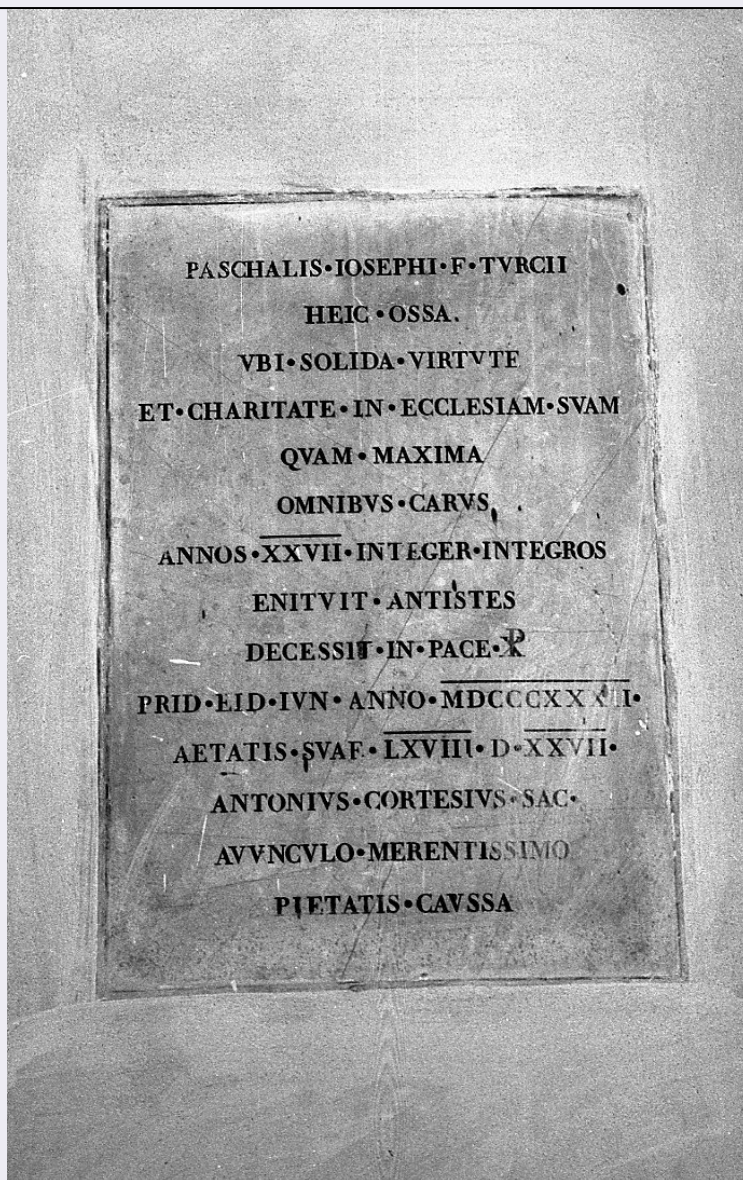 PASCHALIS•IOSEPHI•F•TVRCII
HEIC•OSSA.
VBI•SOLIDA•VIRTVTE
ET•CHARITATE•IN•ECCLESIAM•SVAM
QVAM•MAXIMA
OMNIBVS•CARVS
ANNOS•XXVII•INTEGER•INTEGROS
ENITVIT•ANTISTES
DECESSIT•IN•PACE•☧
PRID•EID•IVN•ANNO•
AETATIS•SVAE•LXVIII•D•XXVII•
ANTONIVS•CORTESIVS•SAC•
AVVNCVLO•MERENTISSIMO
PIETATIS•CAVSSA